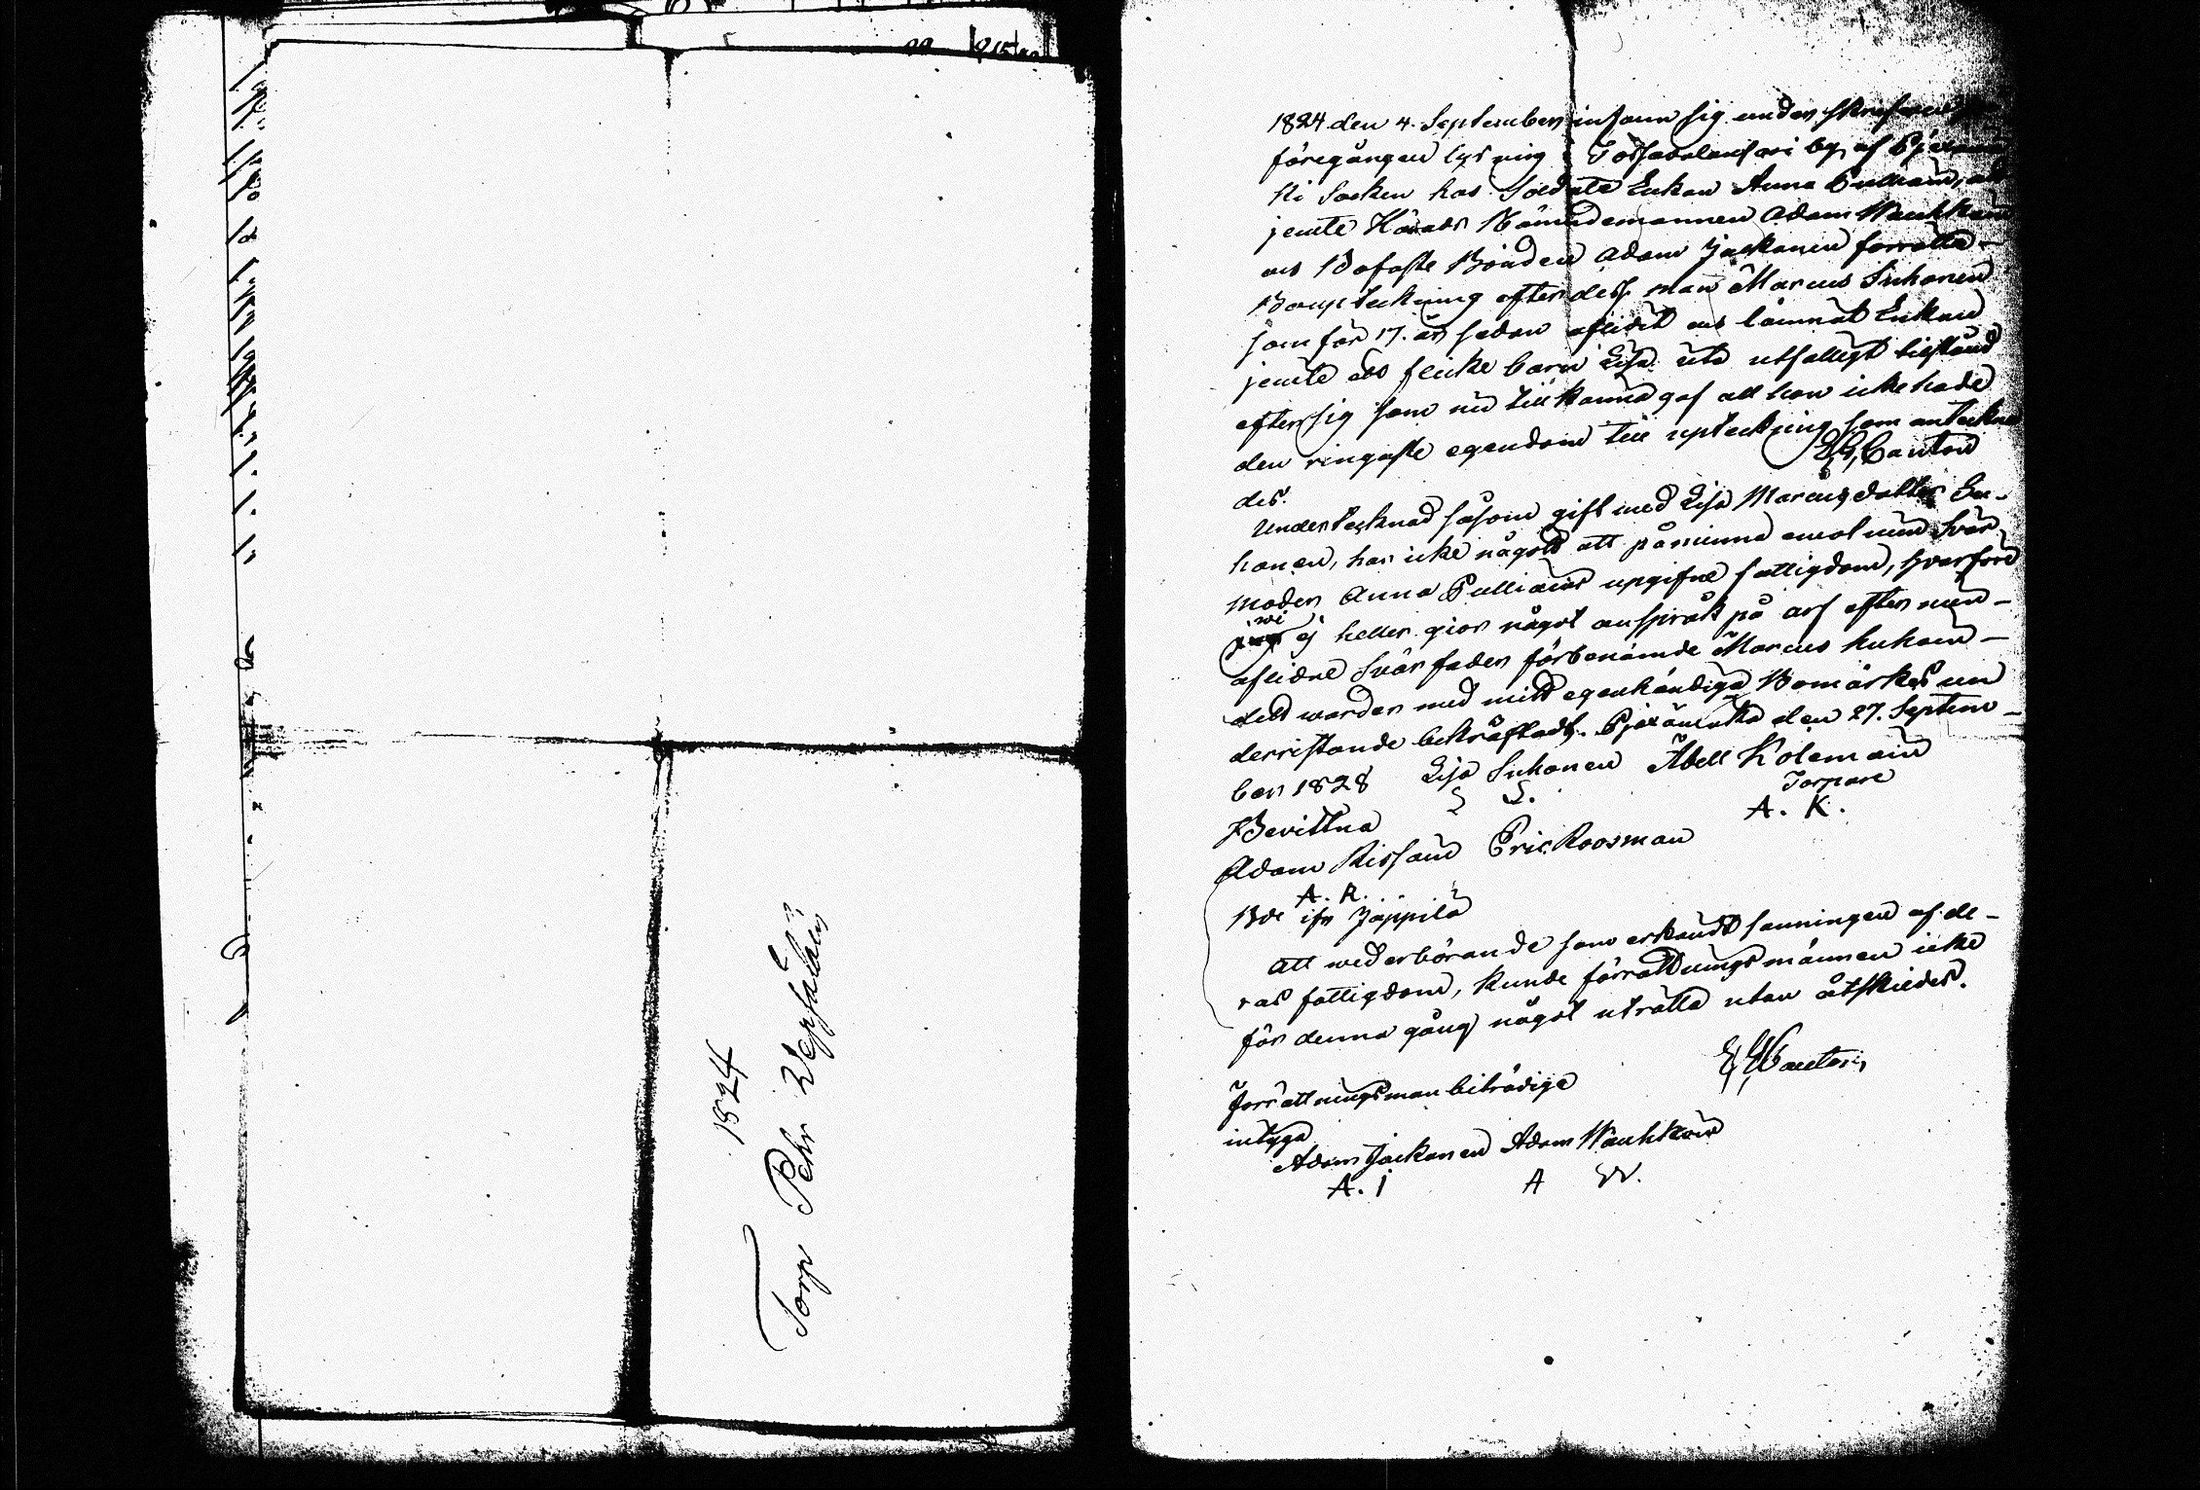 1824
Torp Pehr Vepsäläin
1824 den 4. September infann sig under skrefven
föregången lysning i Torsavalansari by af Pjexäm
ki Socken hos Soldats Enkan Anna Pulliain, att
jemte Härads Nämndemannen Adam Wauhkoin
och Bofaste Bonden Adam Jäskanen förrätta
Boupteckning efter dess man Marcus Suhonen
som för 17. år sedan aflidit och lämnat Enkan
jemte ett flicke barn Lisa uti utfattigt tillstånd
efter sig som nu tillkänna gaf att hon icke hade
den ringaste egendom till upteckning som anteckna
des. Canton
Undertecknad såsom gift med Lisa Marcusdotter Su-
honen, har icke någott att påminna emot min Svär
moder Anna Pulliains upgifne fattigdom, hvarföre
wi ej heller giör något anspråk på arf efter min
aflidne Svärfader förbenämde Marcus Suhoin
dett warder med mitt egenhändiga Bomärkes un
derristande bekräftadt. Pjexämäki den 27. Septem
ber 1828 Lisa Suhonen Abell Kolemain
L S. Torpare
Bevittna A. K.
Adam Rissain Eric Roosman
A. R.
Bde ifr Jäppilä
Att wederbörande som erkändt sanningen af de-
ras fattigdom, kunde förrättningsmännen icke
för denna gång något uträtta utan åtskildes.
Canton
Förrättningsman biträdige
intyga
Adam Jäskanen Adam Wauhkoin
A. I A W.